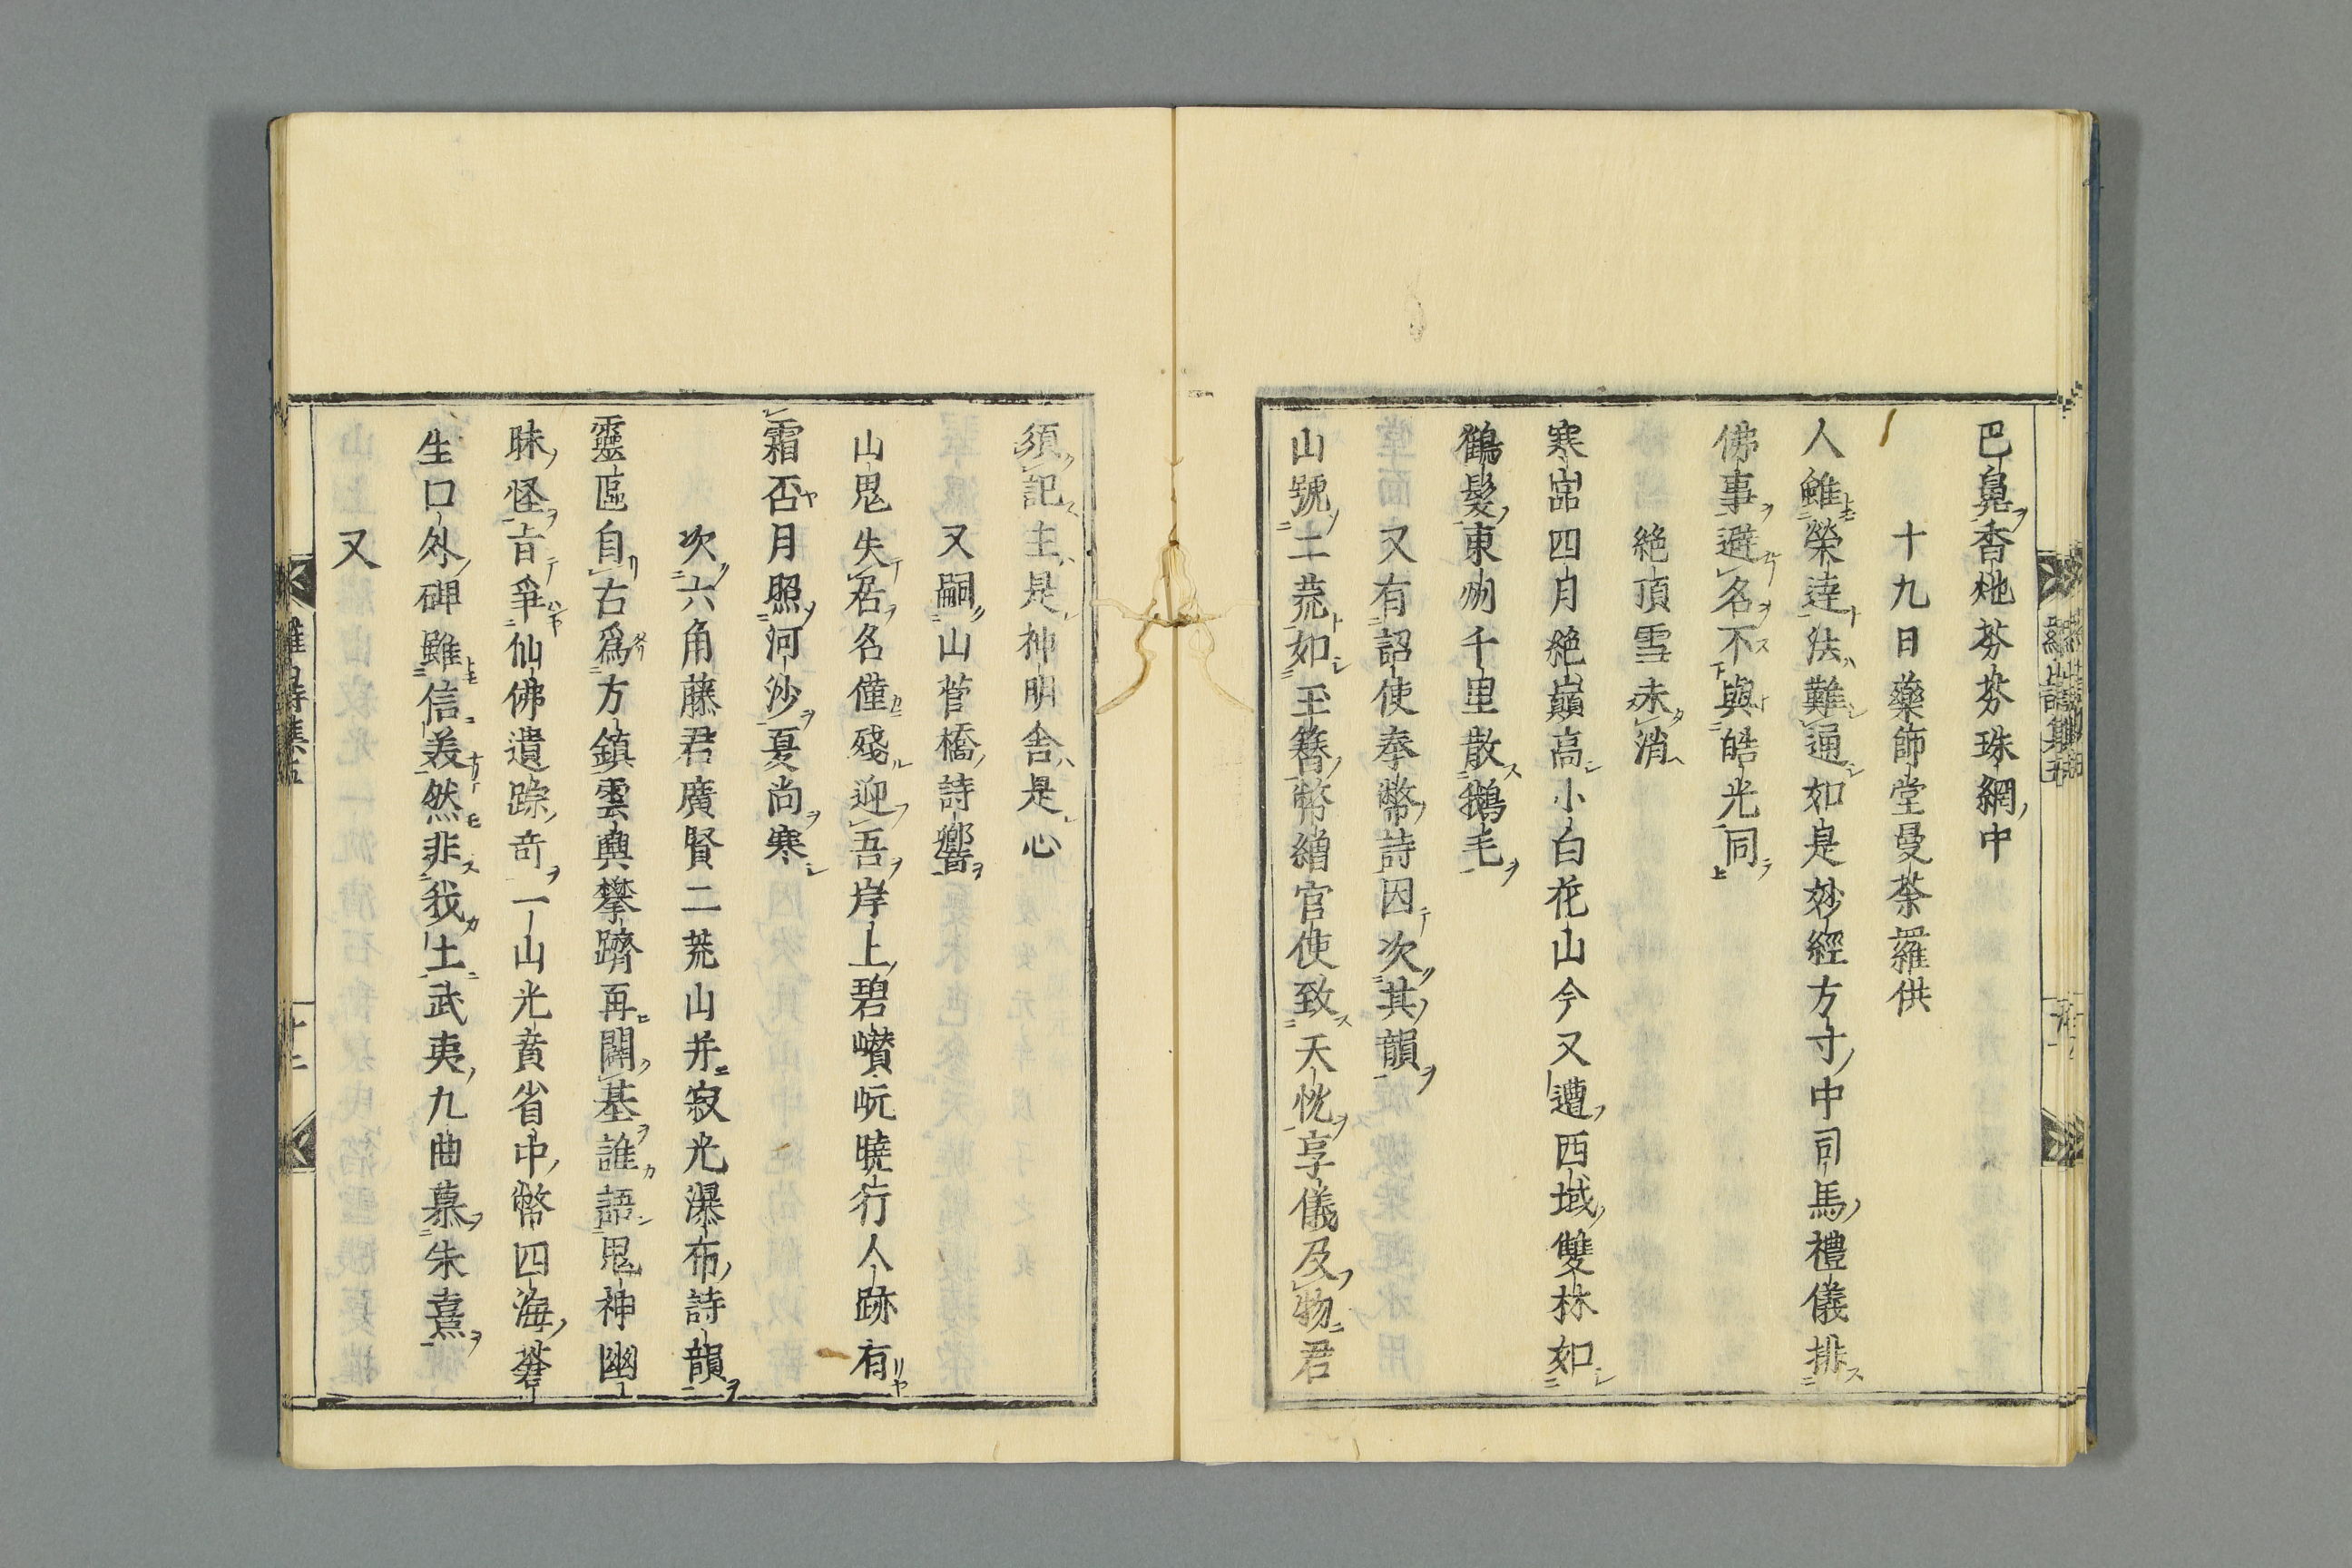 巴鼻香灺芬芬珠網中
十九日藥師堂曼荼羅供
人雖榮達法難通如是妙經方寸中司馬禮儀排
佛事避名不與皓光同
絶頂雪未消
寒嵓四月絶巓高小白花山今又遭西域雙林如
鶴髮東州千里散鵝毛
又有詔使奉幣詩因次其韻
山號二荒如玉簪幣繒官使致天忱享儀及物君
須記主是神明舍是心
又嗣山菅橋詩響
山鬼失君名僅殘迎吾岸上碧巑岏曉行人跡有
霜否月照河沙夏尚寒
次六角藤君廣賢二荒山并寂光瀑布詩韻
靈區自古爲方鎭雲輿攀躋再闢基誰語鬼神幽
昧怪旨爭仙佛遺踪奇一山光賁省中幣四海
生口外碑雖信美然非我土武夷九曲慕朱熹
又